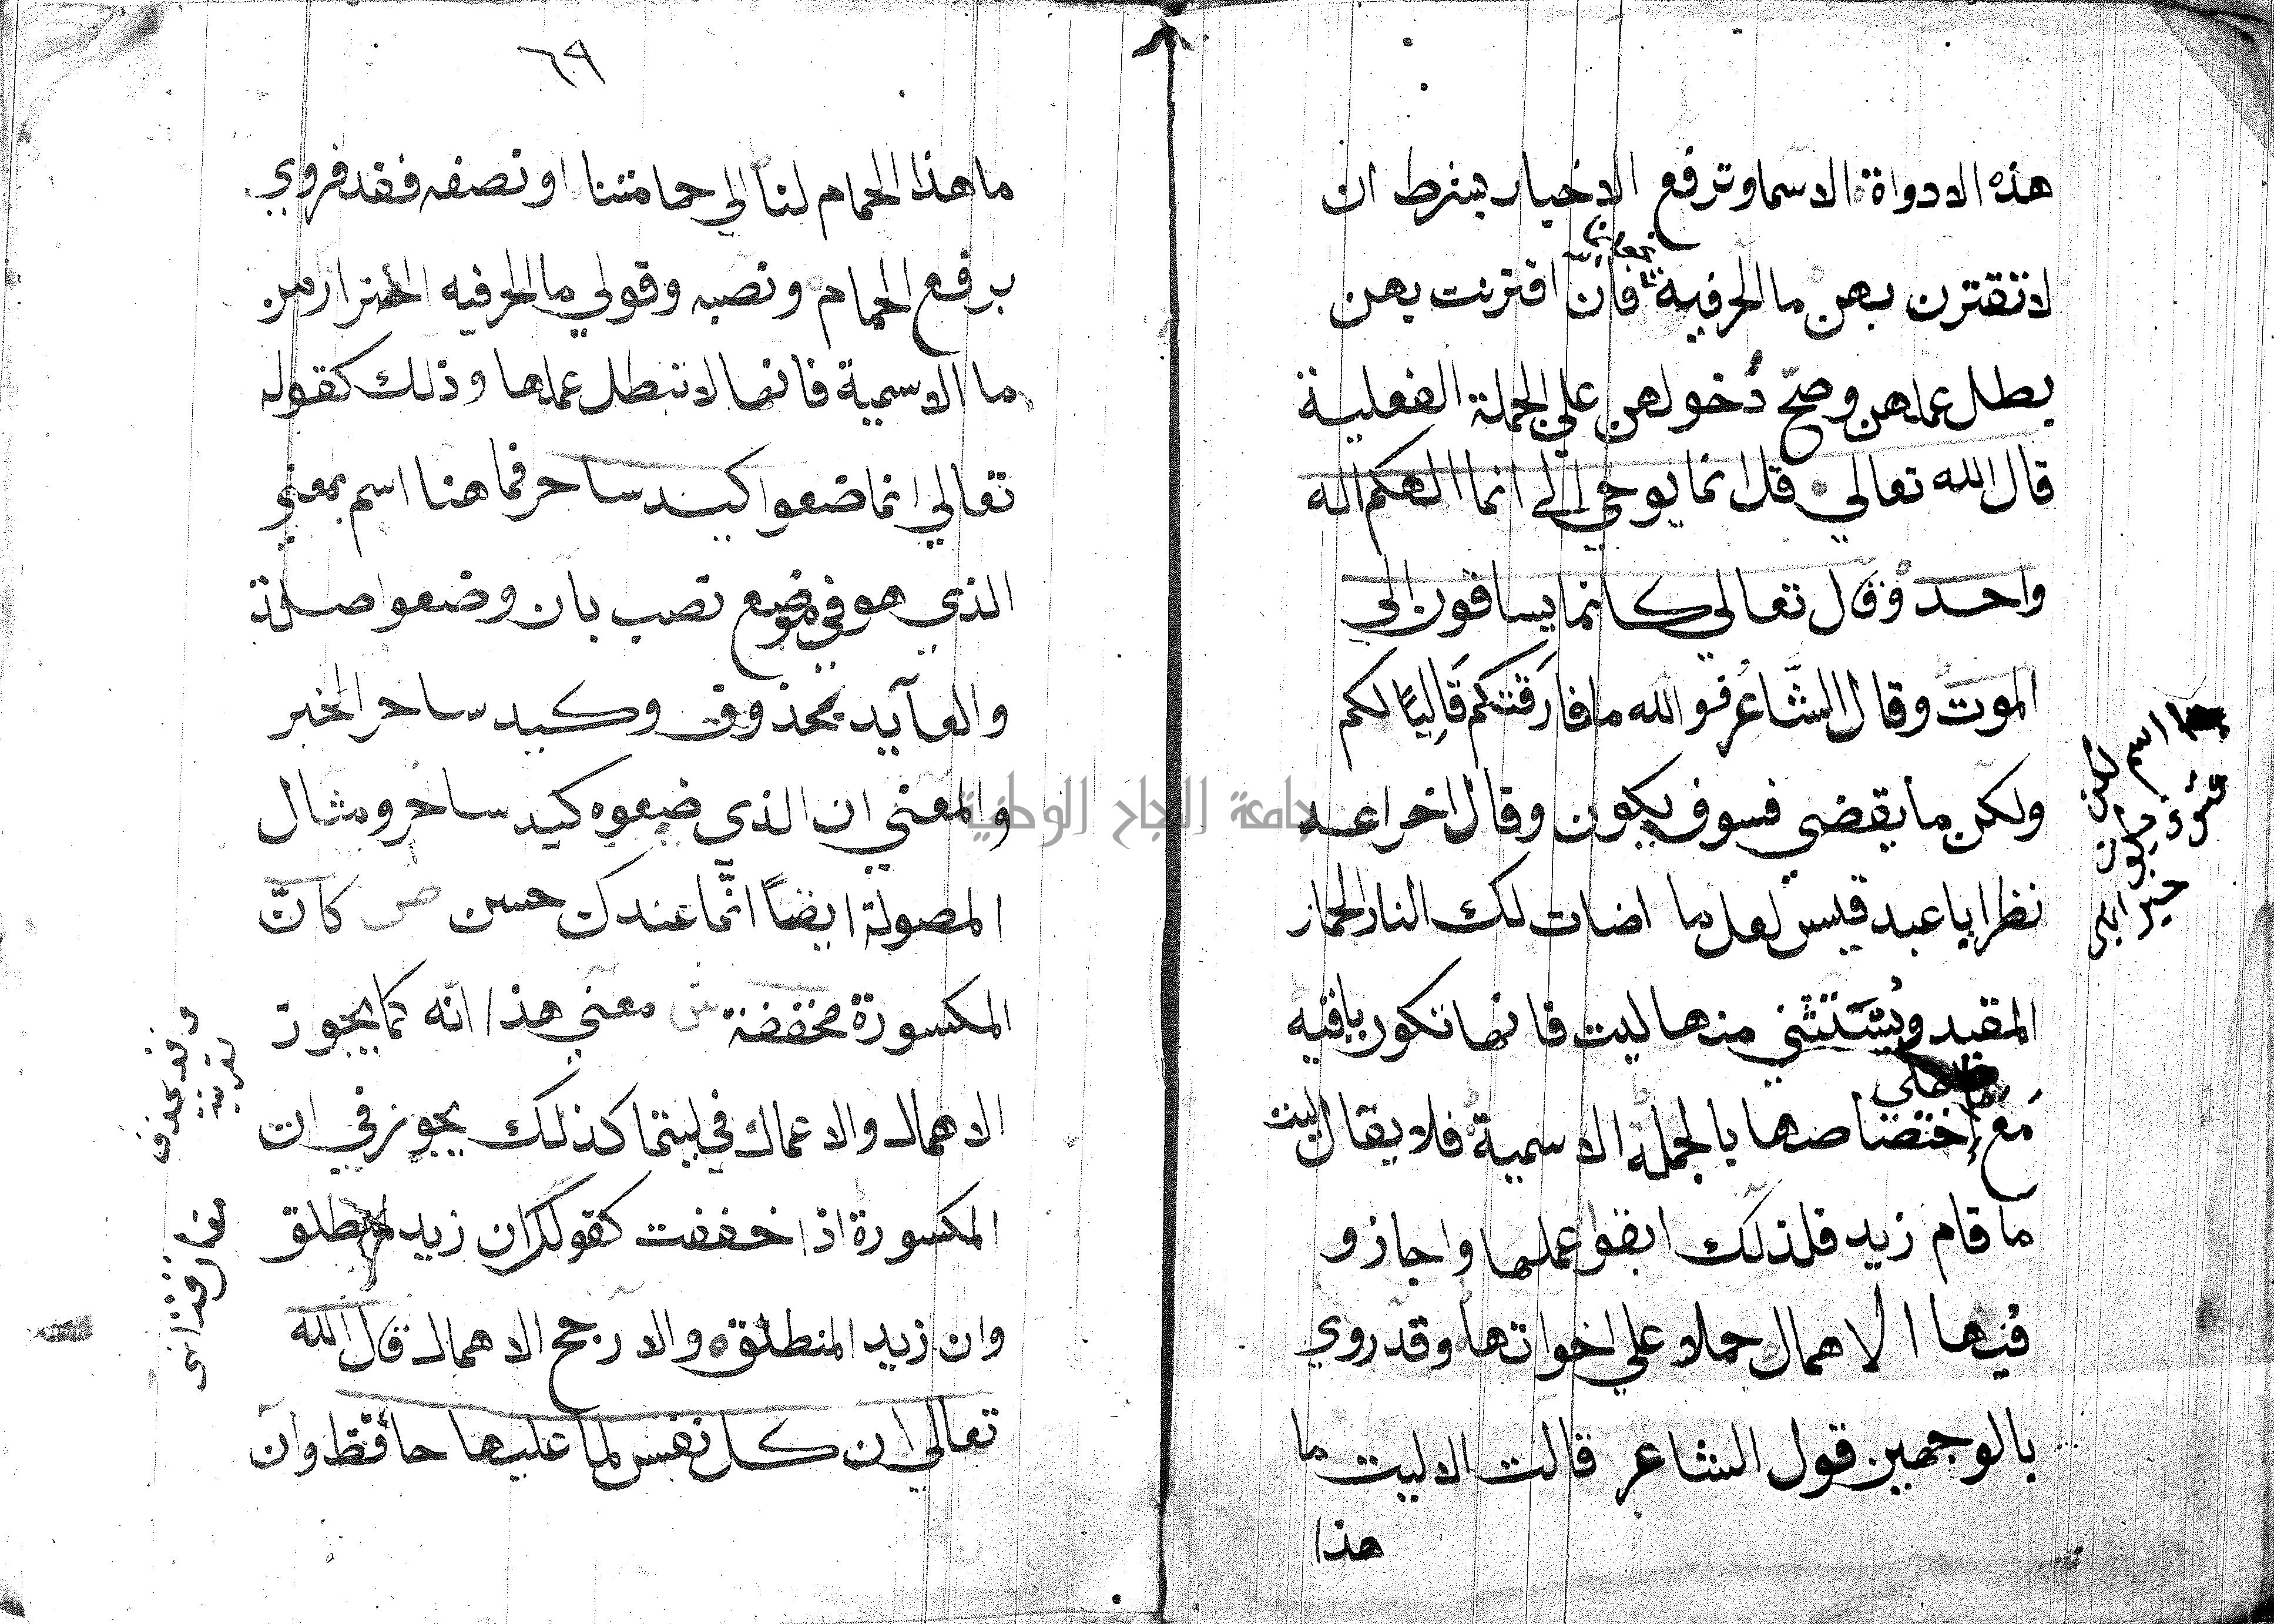 هذه الادواة الاسما وترفع الاخبار بشرط ان
لا تقترن بهن ما الحرفية فان اقترنت بهن
بطل عملهن وصح دخولهن علي الجملة الفعلية
قال الله تعالي قل انما يوحي الي انما الهكم اله
واحد وقال تعالي كانما يساقون الي
الموت وقال الشاعر فو الله ما فارقتكم قاليا لكم
ولكن ما يقضي فسوف يكون وقال اخر اعد
نظرا يا عبد قيس لعل ما اضات لك النار الحمار
المقيد ويستثني منها ليت فانها تكون باقيه
مع إختصاصها بالجملة الاسمية فلا يقال ليت
ما قام زيد فلذلك ابقوا عملها واجازو
فيها الاهمال حملا علي اخواتها وقد روي
بالوجهين قول الشاعر قالت الا ليت ما
هذا
اسم لكن
خبر
٦٩
ما هذا الحمام لنا الي حمامتنا او نصفه فقد فروي
برفع الحمام ونصبه وقولي ما الحرفيه احتراز من
ما الاسمية فانها لا تبطل عملها وذلك كقوله
تعالي انما ضعوا كيد ساحر فما هنا اسم بمعني
الذي هو في موضع نصب بان وضعوا صلة
والعآيد محذوف وكيد ساحر الخبر
والمعني ان الذي ضعوه كيد ساحر ومثال
المصولة ايضاً انّما عندك حسن ص كانّ
المكسورة مخففة ش معني هذا انه كما يجوز
الاهمال والاعمال في ليتما كذلك يجوز في ان
المكسورة اذا خففت كقولك ان زيد لمنطلق
وان زيد المنطلق والارجح الاهمال قال الله
تعالي ان كل نفس لما عليها حافظ وان
وقد يحذف
لقرينة